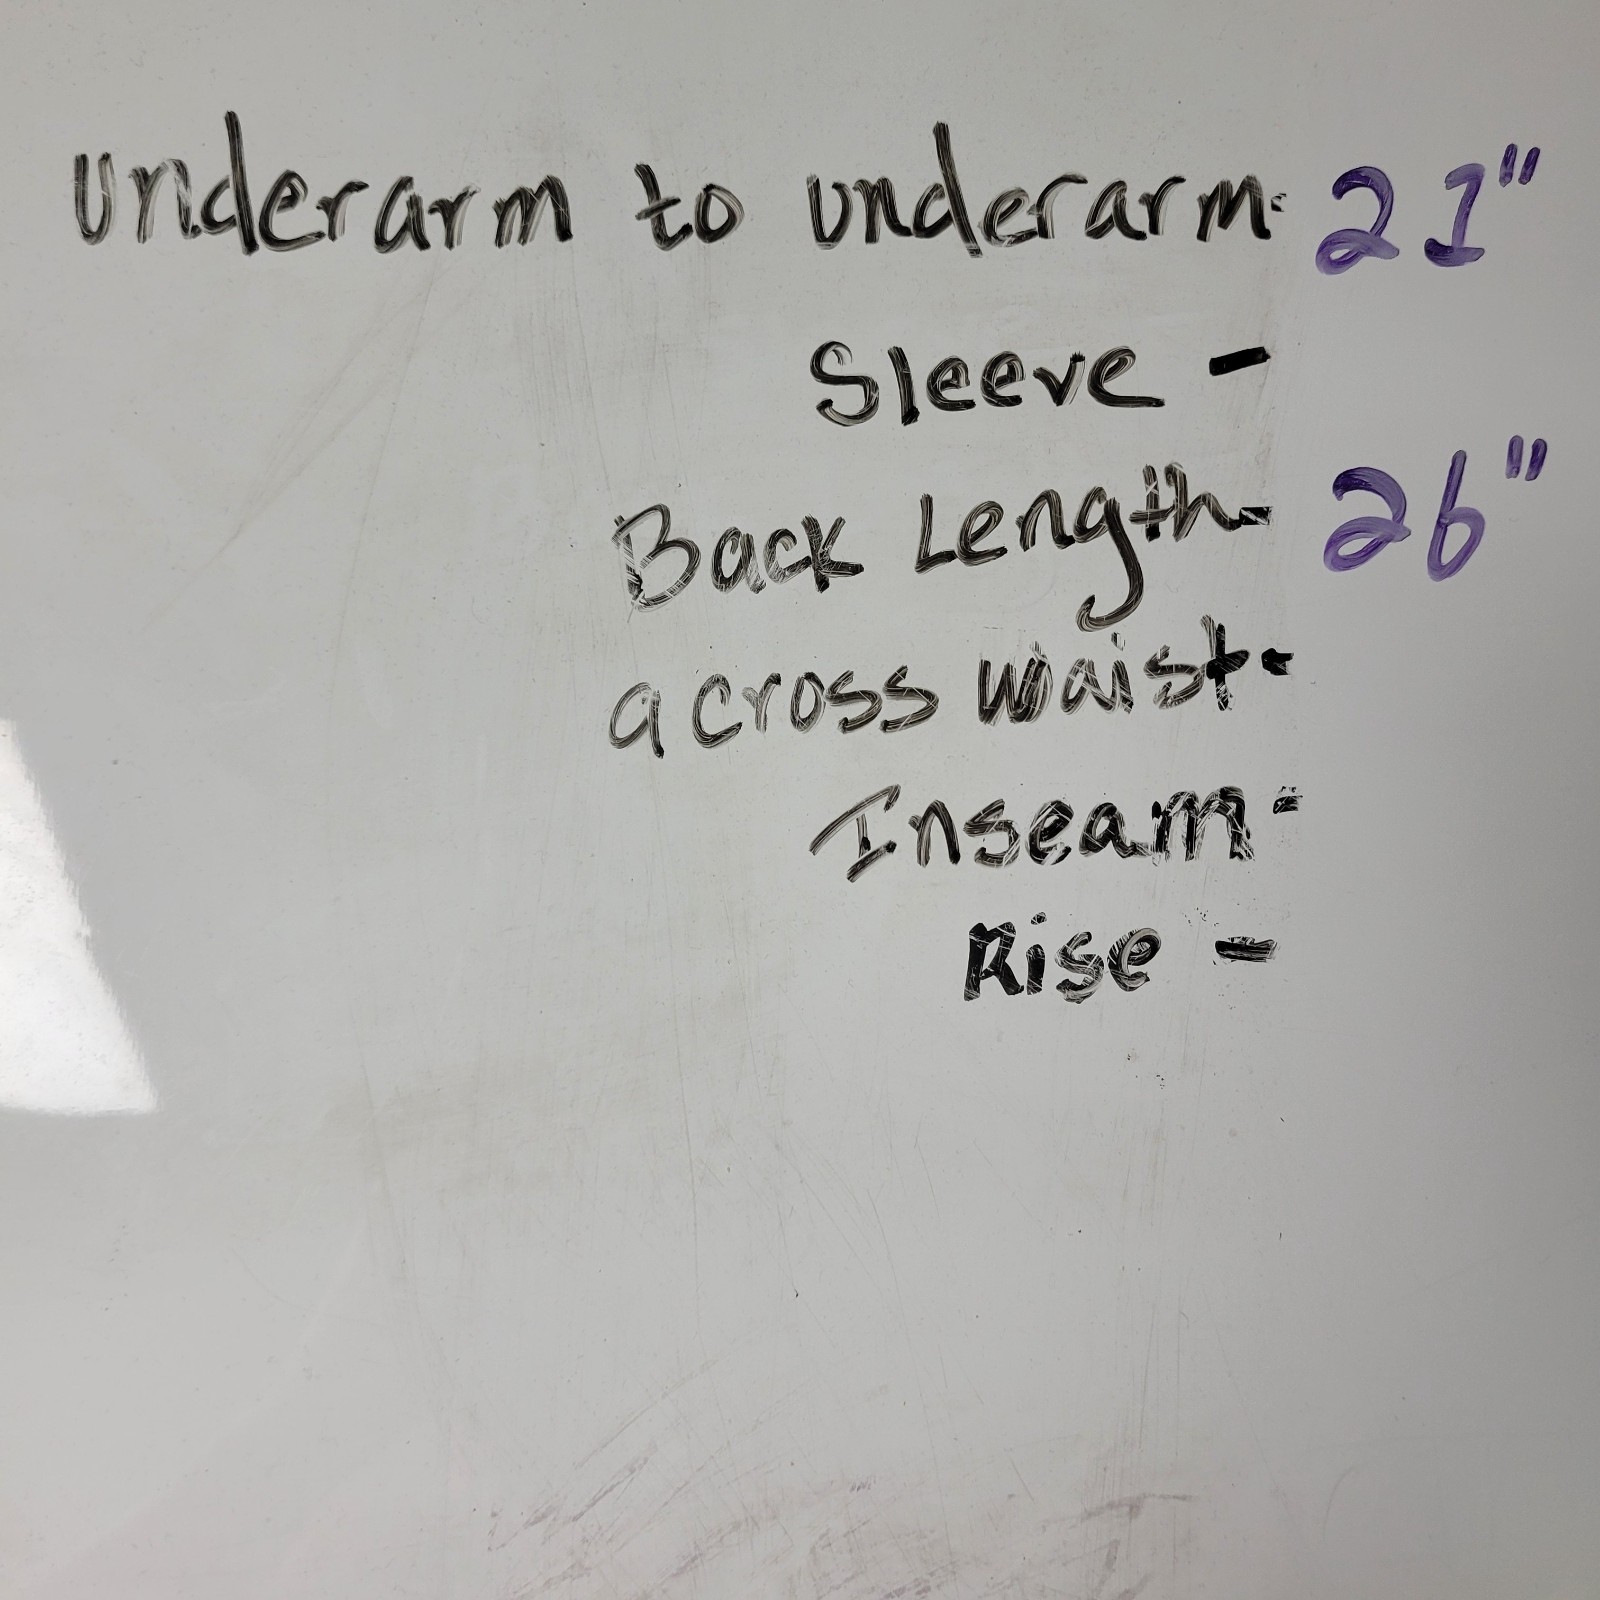 Underarm to underarm- 21"
Sleeve -
Back Length- 26"
across waist-
Inseam-
Rise -